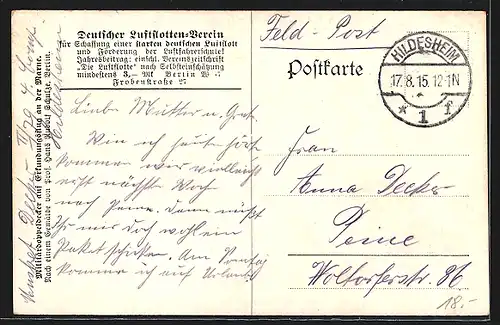 Deutscher Luftflotten-Verein
für Schaffung einer starken deutschen Luftflott
und Förderung der Luftfahrerschule!
Jahresbeitrag: einschl. Vereinszeitschrift
"Die Luftflotte" nach Selbsteinschätzung
mindestens 3.— Mk Berlin W
Frobenstraße 27
Feld-Post
Postkarte
HILDESHEIM
17.8.15.12-1N
* 1 f
Liebe Mutter u. Gret.
Wenn ich heute
kommen wir vielleicht
erst nächste Woche
nach Peine. Dann müßt
Ihr mir doch wohl ein
Paket schicken. Am Sonntag
komme ich auf Urlaub
Frau
Anna Decker
Peine
Woltorferstr. 86
18.-
Musket Decker
Hildesheim
Militärdoppeldecker auf Erkundungsflug an der Marne.
Nach einem Gemälde von Prof. Hans Rudolf Schulze, Berlin.